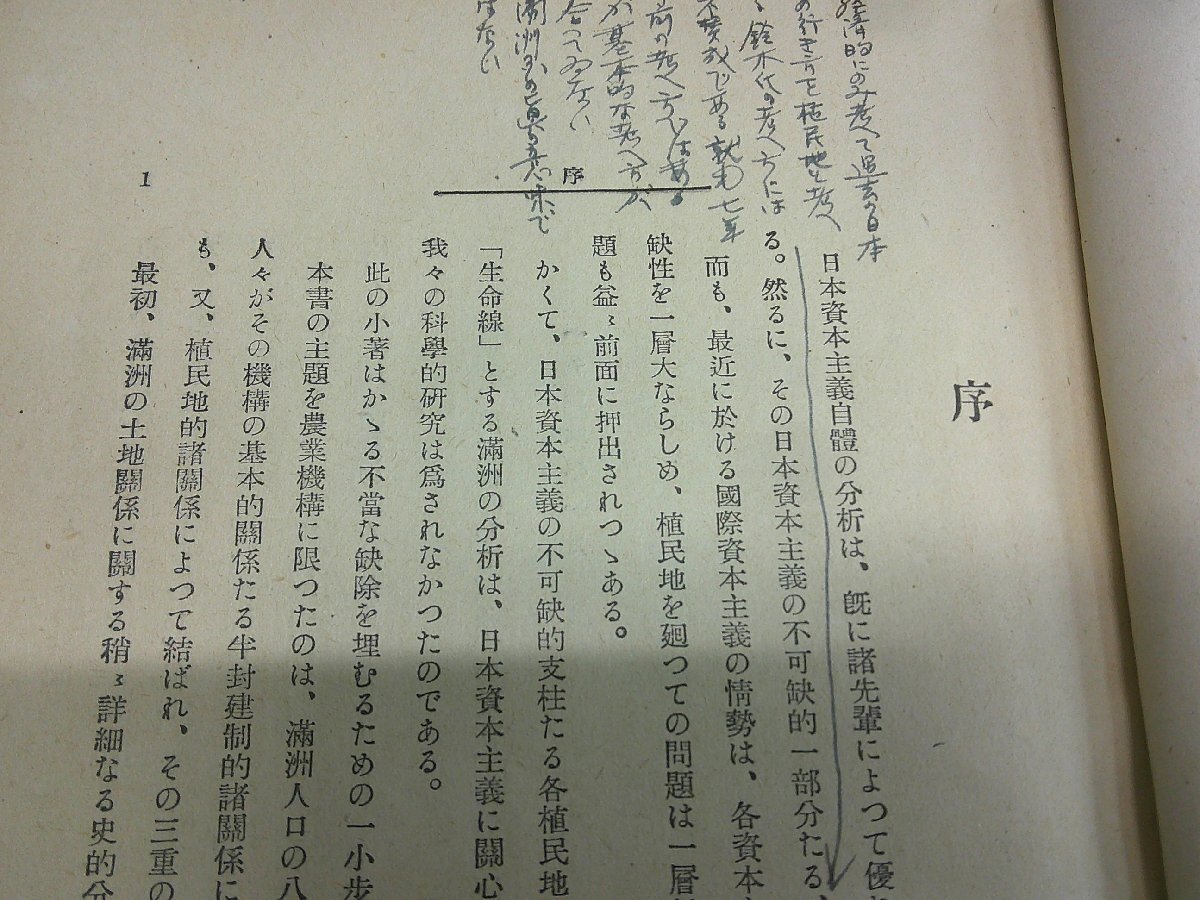 経済的にのみ考へて過去の日本
の行き方を植民地と考へ
鈴木氏の考へ方には
不賛成である 就中七年
前の考へ方ではある
が基本的な考へ方が
合つてゐない
満洲国の真の意味で
はない
序
1
序
日本資本主義自體の分析は、既に諸先輩によつて優
る。然るに、その日本資本主義の不可缺的一部分たる、
而も、最近に於ける國際資本主義の情勢は、各資本
缺性を一層大ならしめ、植民地を廻つての問題は一層
題も益〻前面に押出されつゝある。
かくて、日本資本主義の不可缺的支柱たる各植民地
「生命線」とする滿洲の分析は、日本資本主義に關心
我々の科學的硏究は爲されなかつたのである。
此の小著はかゝる不當な缺除を埋むるための一小步
本書の主題を農業機構に限つたのは、滿洲人口の八
人々がその機構の基本的關係たる半封建制的諸關係に
も、又、植民地的諸關係によつて結ばれ、その三重の
最初、滿洲の土地關係に關する稍〻詳細なる史的分